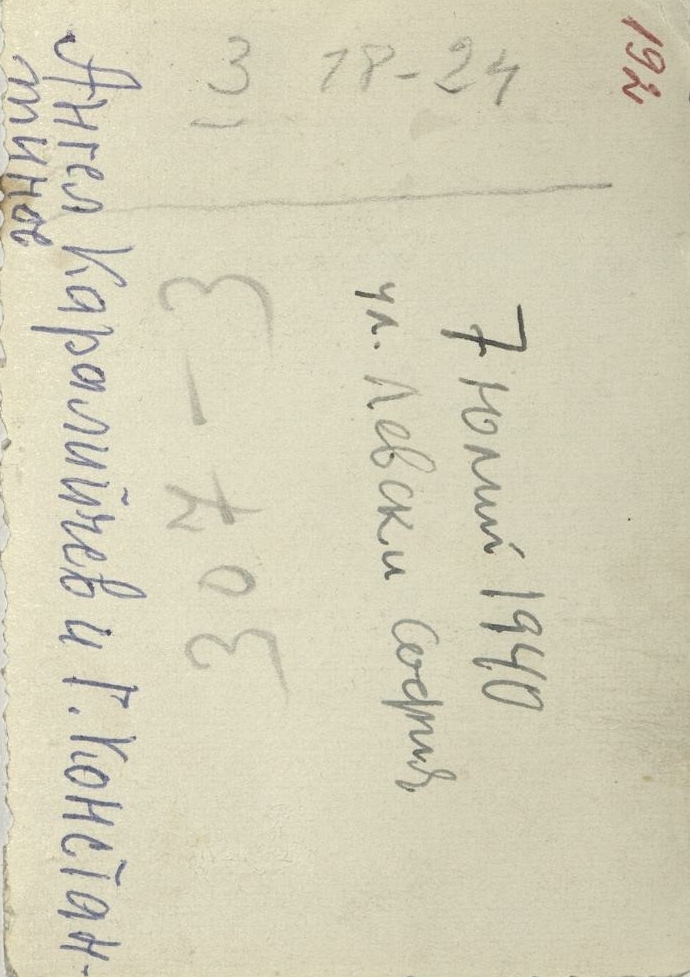 192
3 18-24
7 юлий 1940
ул. Левски София
Ангел Каралийчев и Г. Констан-
тинов